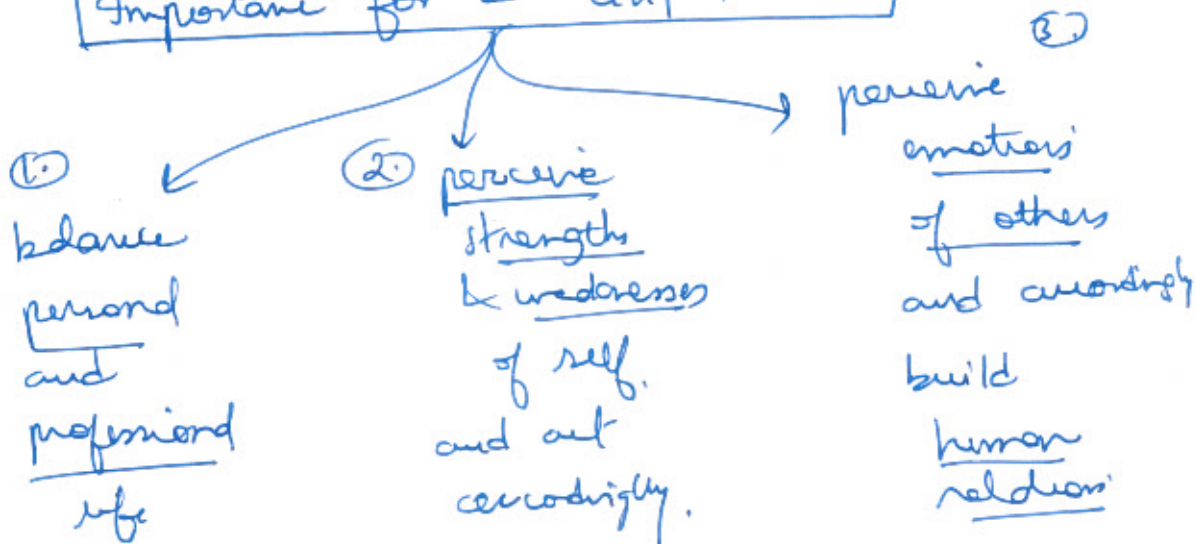 Importance for
1.
balance
personal
and
professional
life
2.
perceive
strengths
& weaknesses
of self.
and act
accordingly.
3.
perceive
emotions
of others
and accordingly
build
human
relations